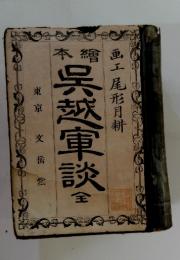 画工 尾形月耕
繪本
呉越軍談
全
東京 文岳堂